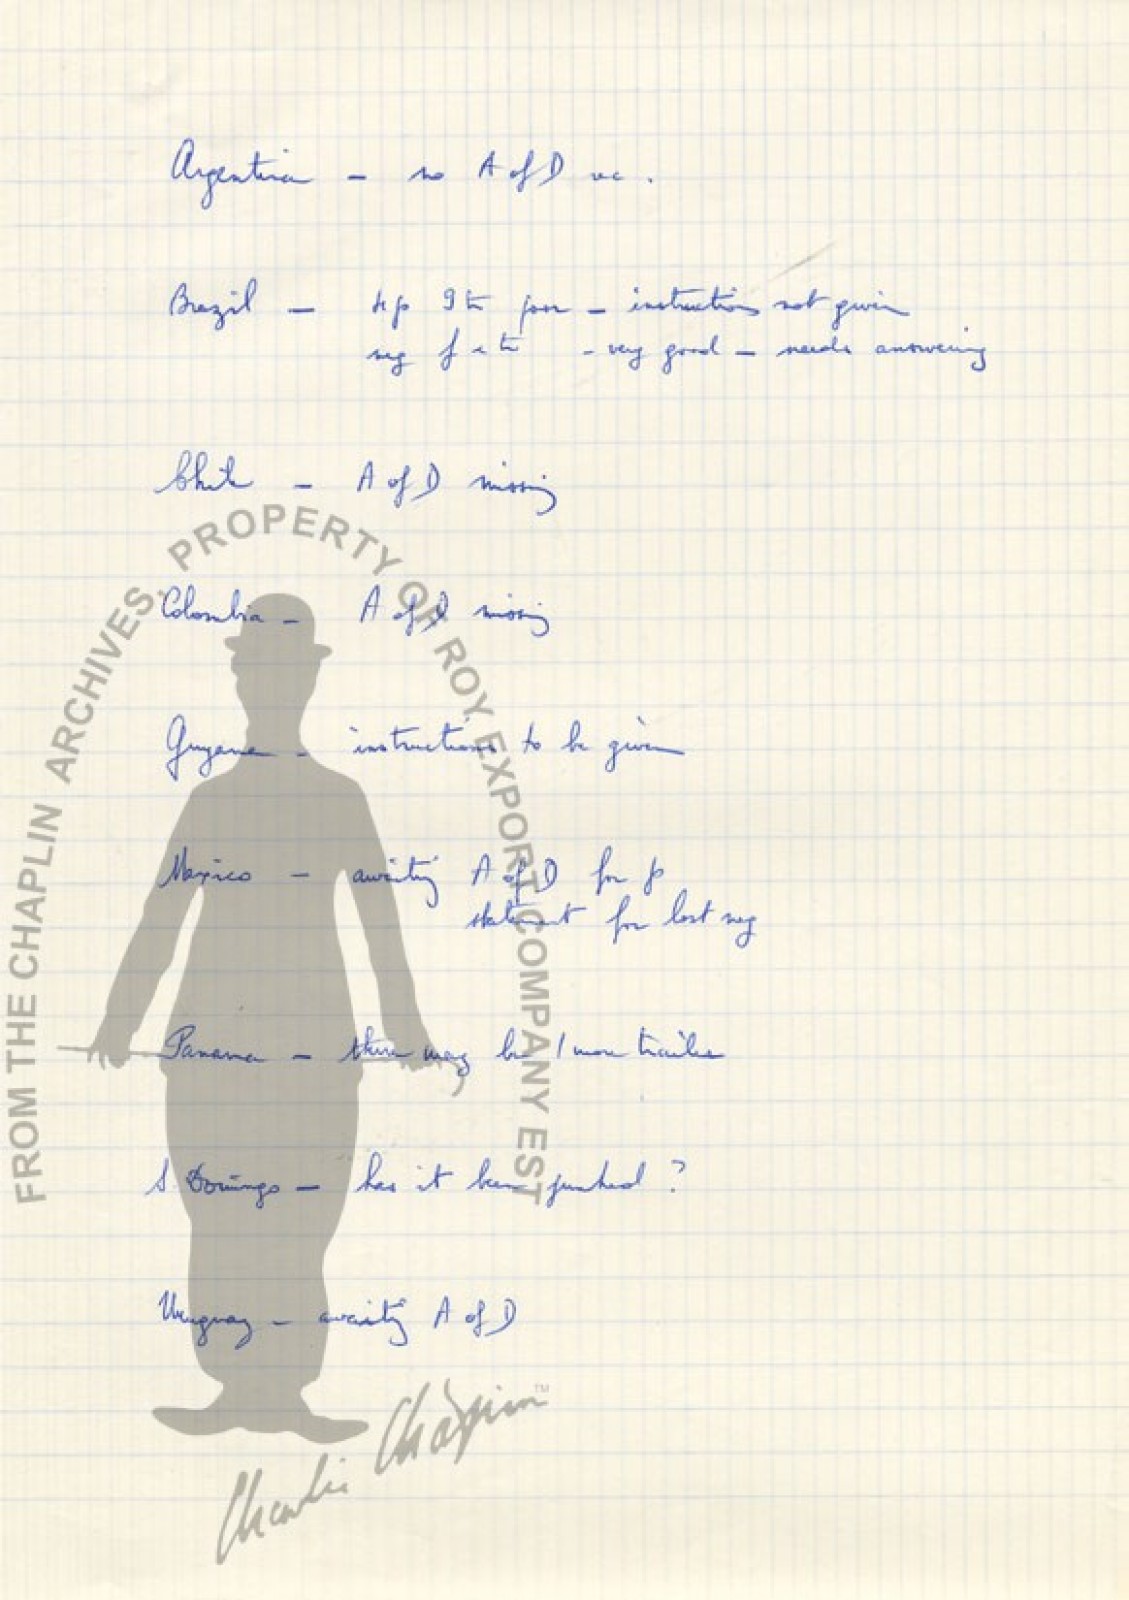 Argentina - no A of D rec.
Brazil - 4 p 9 tr poor - instructions not given
neg f x tr - very good - needs answering
Chile - A of D missing
Colombia - A of D missing
Guyana - instructions to be given
Mexico - awaiting A of D for p
statement for lost neg
Panama - there may be 1 more trailer
S Domingo - has it been junked ?
Uruguay - awaiting A of D
FROM THE CHAPLIN ARCHIVES, PROPERTY OF ROY EXPORT COMPANY EST
Charlie Chaplin TM